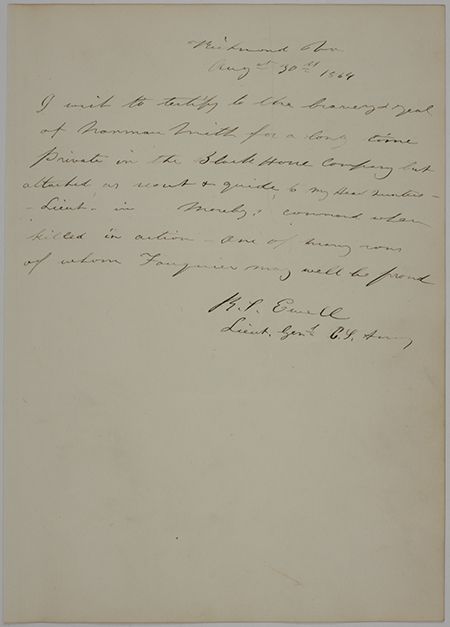 Richmond Va.
Augst 30th 1864
I wish to testify to the bravery & zeal
of Norman Smith for a long time
Private in the Black Horse Company but
attached as scout & guide to my Head Quarters -
- Lieut. in Mosby's command when
killed in action - one of many sons
of whom Fauquier may well be proud
R. S. Ewell
Lieut. Genl. C.S. Army